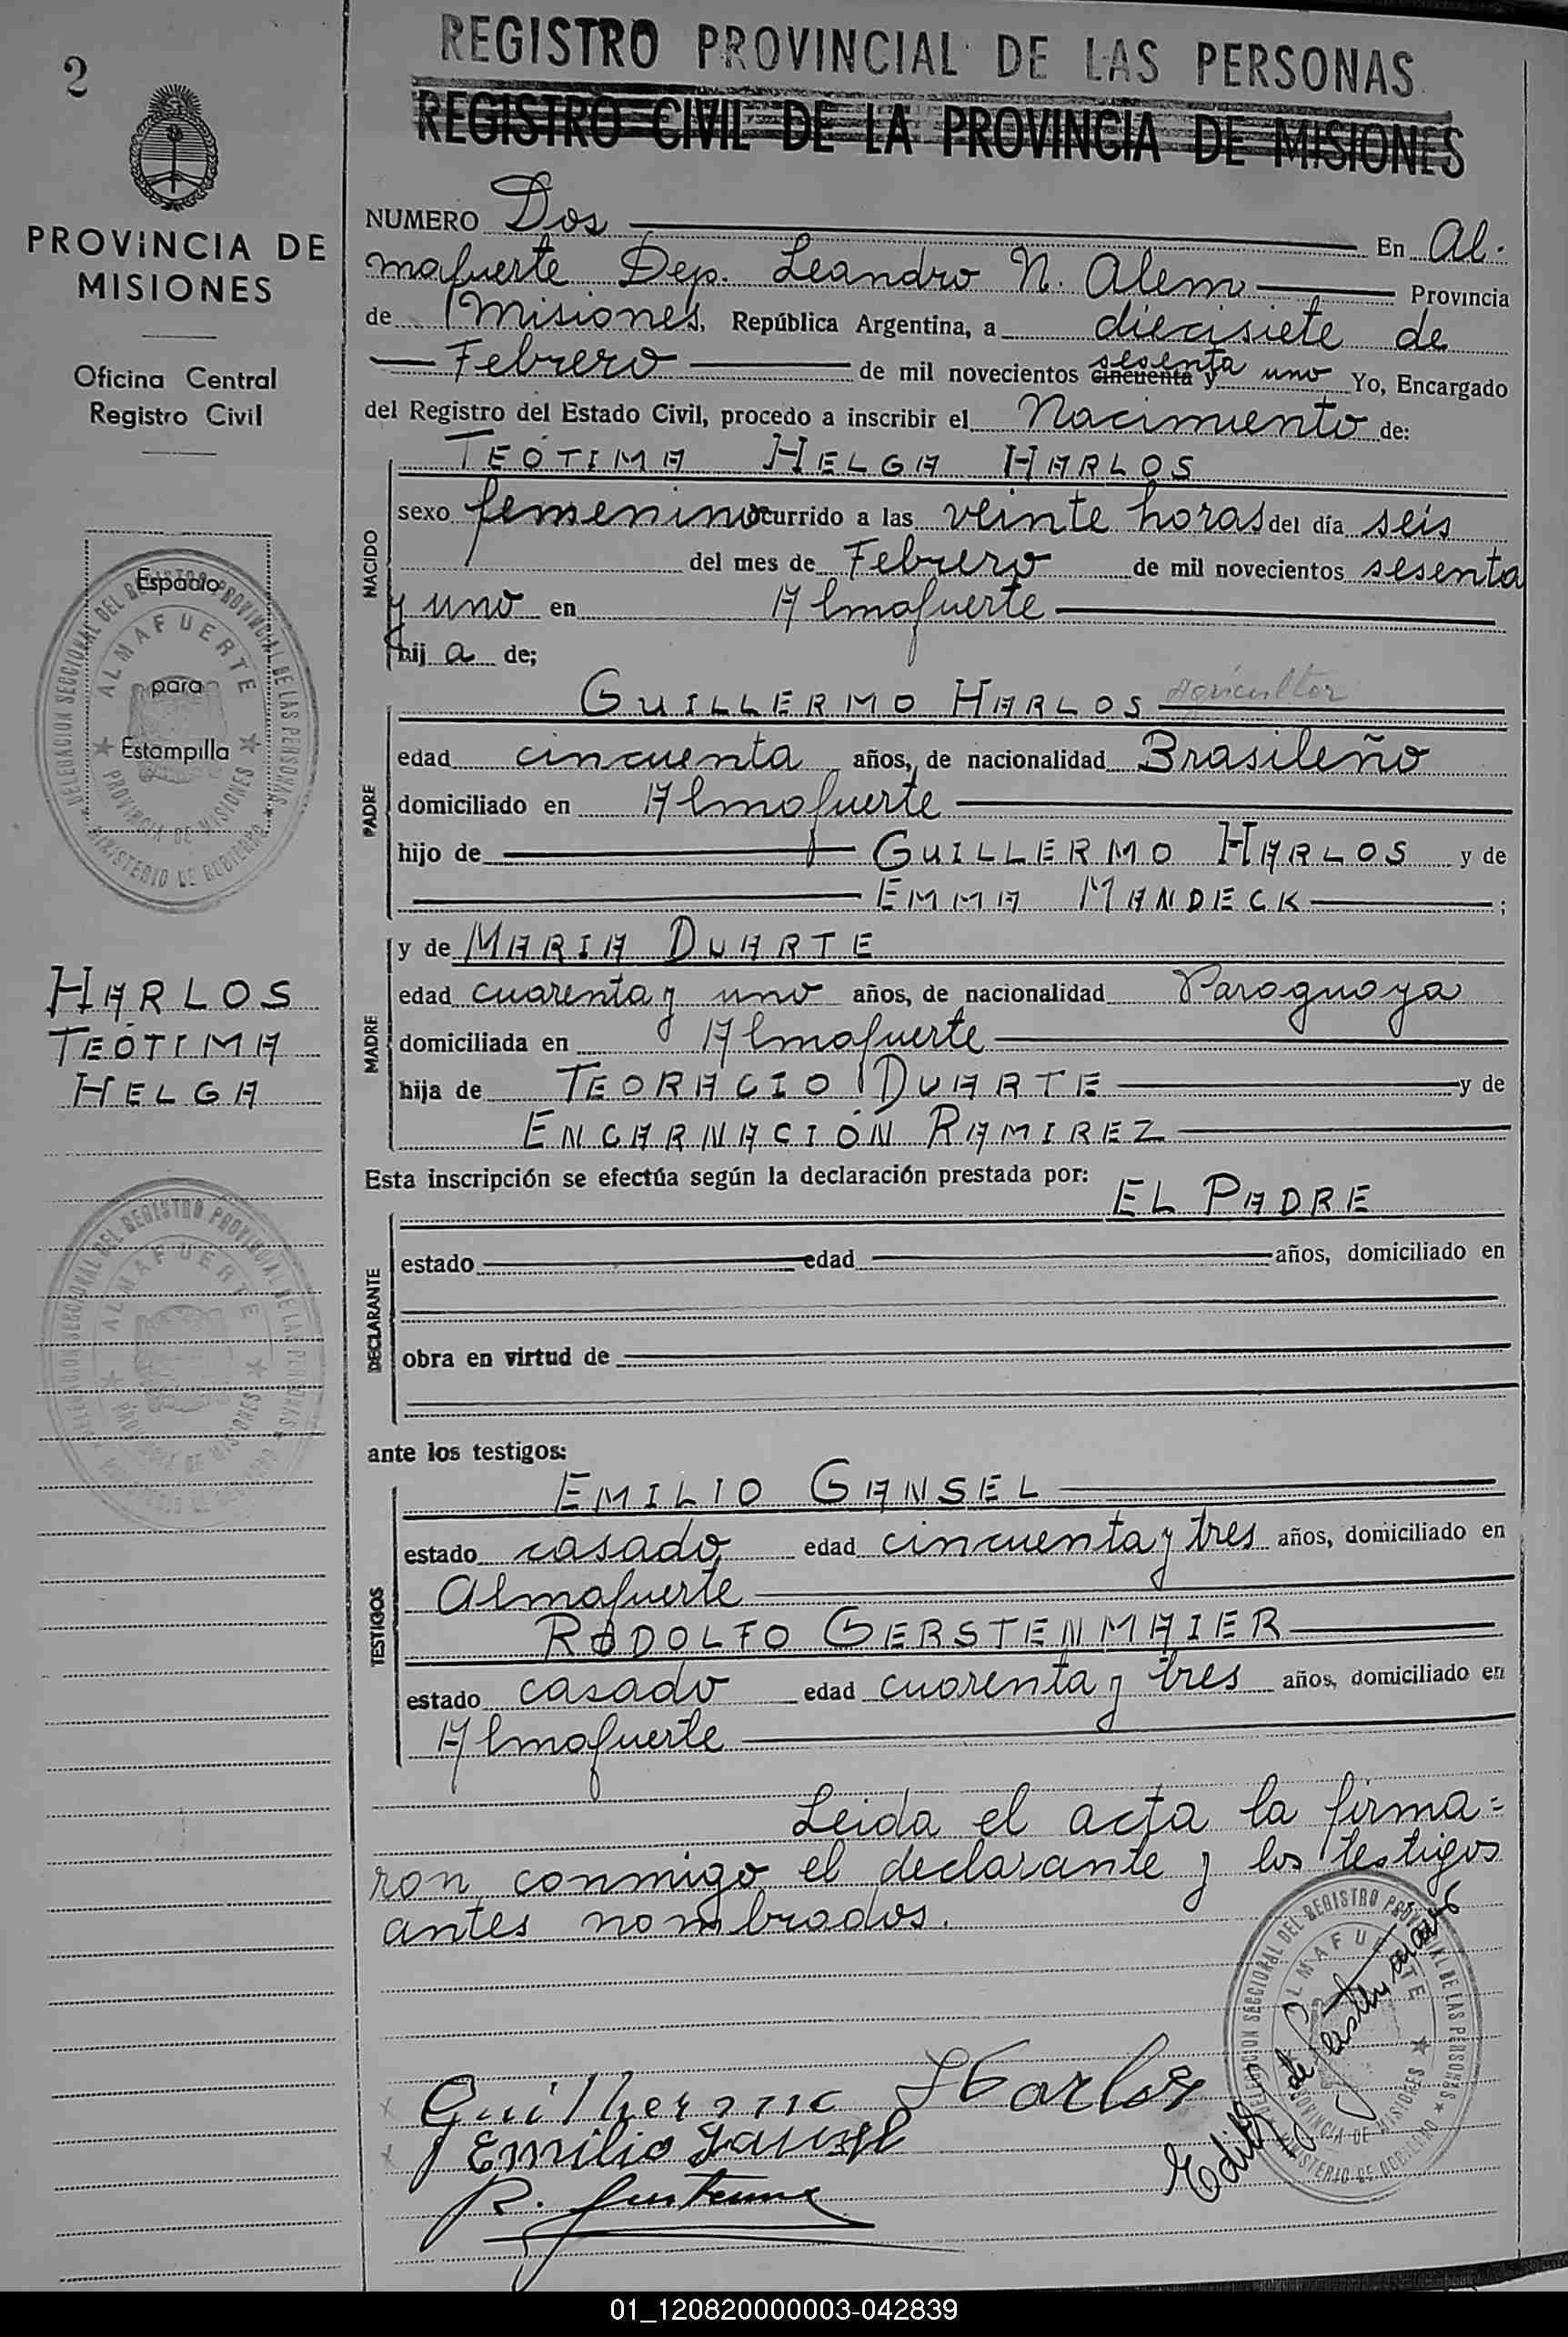 2
PROVINCIA DE
MISIONES
Oficina Central
Registro Civil
Espacio
para
Estampilla
DELEGACION SECCIONAL DEL REGISTRO PROVINCIAL DE LAS PERSONAS
ALMAFUERTE
PROVINCIA DE MISIONES
MINISTERIO DE GOBIERNO
HARLOS
TEÓTIMA
HELGA
DELEGACION SECCIONAL DEL REGISTRO PROVINCIAL DE LAS PERSONAS
ALMAFUERTE
PROVINCIA DE MISIONES
REGISTRO PROVINCIAL DE LAS PERSONAS
REGISTRO CIVIL DE LA PROVINCIA DE MISIONES
NUMERO Dos En Al-
mafuerte Dep. Leandro N. Alem Provincia
de Misiones, República Argentina, a diecisiete de
Febrero de mil novecientos cincuenta y sesenta uno Yo, Encargado
del Registro del Estado Civil, procedo a inscribir el Nacimiento de:
TEÓTIMA HELGA HARLOS
NACIDO
sexo femenino ocurrido a las veinte horas del día seis
del mes de Febrero de mil novecientos sesenta
y uno en Almafuerte
hij a de;
GUILLERMO HARLOS agricultor
PADRE
edad cincuenta años, de nacionalidad Brasileño
domiciliado en Almafuerte
hijo de GUILLERMO HARLOS y de
EMMA MANDECK ;
y de MARIA DUARTE
MADRE
edad cuarenta y uno años, de nacionalidad Paraguaya
domiciliada en Almafuerte
hija de TEORACIO DUARTE y de
ENCARNACIÓN RAMIREZ
Esta inscripción se efectúa según la declaración prestada por:
EL PADRE
DECLARANTE
estado edad años, domiciliado en
obra en virtud de
ante los testigos:
EMILIO GANSEL
TESTIGOS
estado casado edad cincuenta y tres años, domiciliado en
Almafuerte
RODOLFO GERSTENMAIER
estado casado edad cuarenta y tres años, domiciliado en
Almafuerte
Leida el acta la firma=
ron conmigo el declarante y los testigos
antes nombrados.
DELEGACION SECCIONAL DEL REGISTRO PROVINCIAL DE LAS PERSONAS
ALMAFUERTE
PROVINCIA DE MISIONES
MINISTERIO DE GOBIERNO
Guilherme Harlos
Emilio Gansel
R.
Edith de
01_120820000003-042839